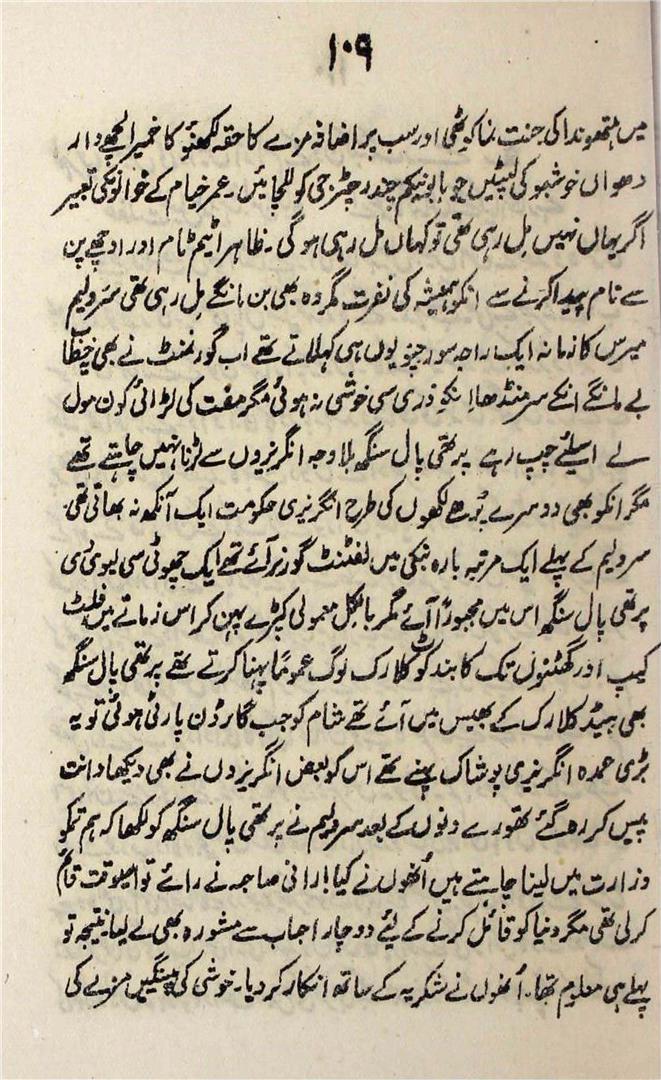 ۱۰۹
میں ہتھوندا کی جنت نما کوٹھی اور سب پر اضافہ مزے کا حقہ لکھنؤ کا خمیرا لچھے دار
دھواں خوشبو کی لپٹیں جو بابو بنکم چندر چٹرجی کو للچائیں۔ عمر خیام کے خوابونکی تعبیر
اگر یہاں نہیں مل رہی تھی تو کہاں مل رہی ہوگی۔ ظاہرا ٹیم ٹام اور اوچھے پن
سے نام پیدا کرنے سے انکو ہمیشہ کی نفرت مگر وہ بھی بن مانگے مل رہی تھی سرولیم
میرس کا زمانہ ایک راجہ سورج یوں ہی کہلاتے تھے اب گورنمنٹ نے بھی خطاب
بے مانگے انکے سر منڈھا انکو ذری سی خوشی نہ ہوئی مگر مفت کی لڑائی کون مول
لے اسلئے چپ رہے پرتھی پال سنگھ بلاوجہ انگریزوں سے لڑنا نہیں چاہتے تھے
مگر انکو بھی دوسرے پڑھے لکھوں کی طرح انگریزی حکومت ایک آنکھ نہ بھاتی تھی۔
سرولیم کے پہلے ایک مرتبہ بارہ بنکی میں لفٹنٹ گورنر آئے تھے ایک چھوٹی سی لیوی ہوئی
پرتھی پال سنگھ اس میں مجبوراً آئے مگر بالکل معمولی کپڑے پہن کر اس زمانے میں فلٹ
کیپ اور گھٹنوں تک کا بند کوٹ کلارک لوگ عموماً پہنا کرتے تھے پرتھی پال سنگھ
بھی ہیڈ کلارک کے بھیس میں آئے تھے شام کو جب گارڈن پارٹی ہوئی تو یہ
بڑی عمدہ انگریزی پوشاک پہنے تھے اس کو بعض انگریزوں نے بھی دیکھا دانت
پیس کر رہ گئے تھورے دنوں کے بعد سرولیم نے پرتھی پال سنگھ کو لکھا کہ ہم تمکو
وزارت میں لینا چاہتے ہیں اُنھوں نے کیا! رانی صاحبہ نے رائے تو اسیوقت قائم
کرلی تھی مگر دنیا کو قائل کرنے کے لئے دو چار احباب سے مشورہ بھی لے لیا۔ نتیجہ تو
پہلے ہی معلوم تھا۔ اُنھوں نے شکریہ کے ساتھ انکار کر دیا۔ خوشی کی پینگیں مزے کی